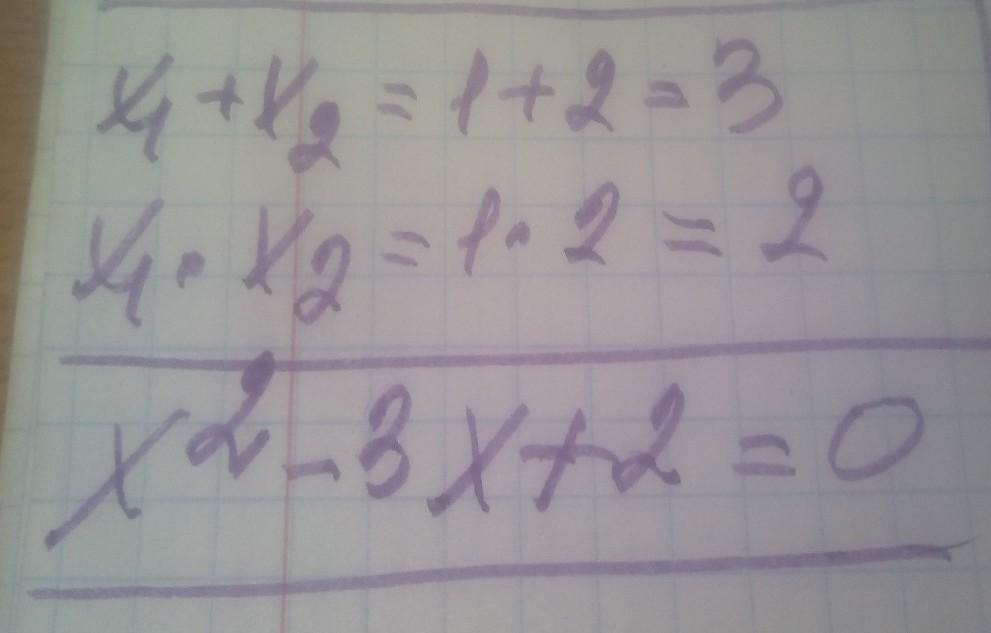 x₁ + x₂ = 1 + 2 = 3
x₁ · x₂ = 1 · 2 = 2
x² - 3x + 2 = 0